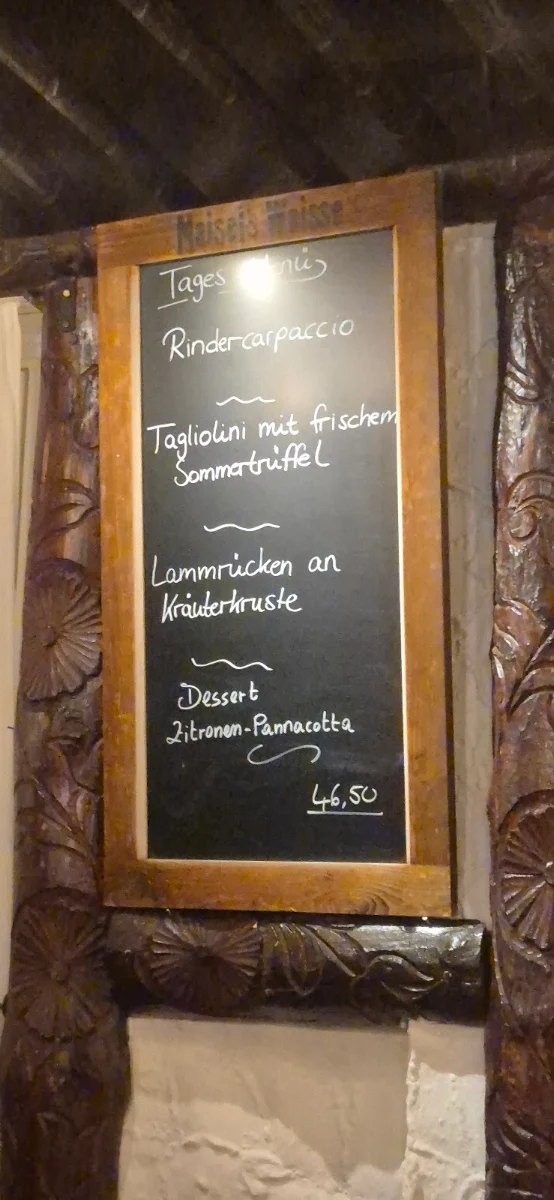 Maisel's Weisse
Tages Menü
Rindercarpaccio
Tagliolini mit frischem
Sommertrüffel
Lammrücken an
Kräuterkruste
Dessert
Zitronen-Pannacotta
46,50